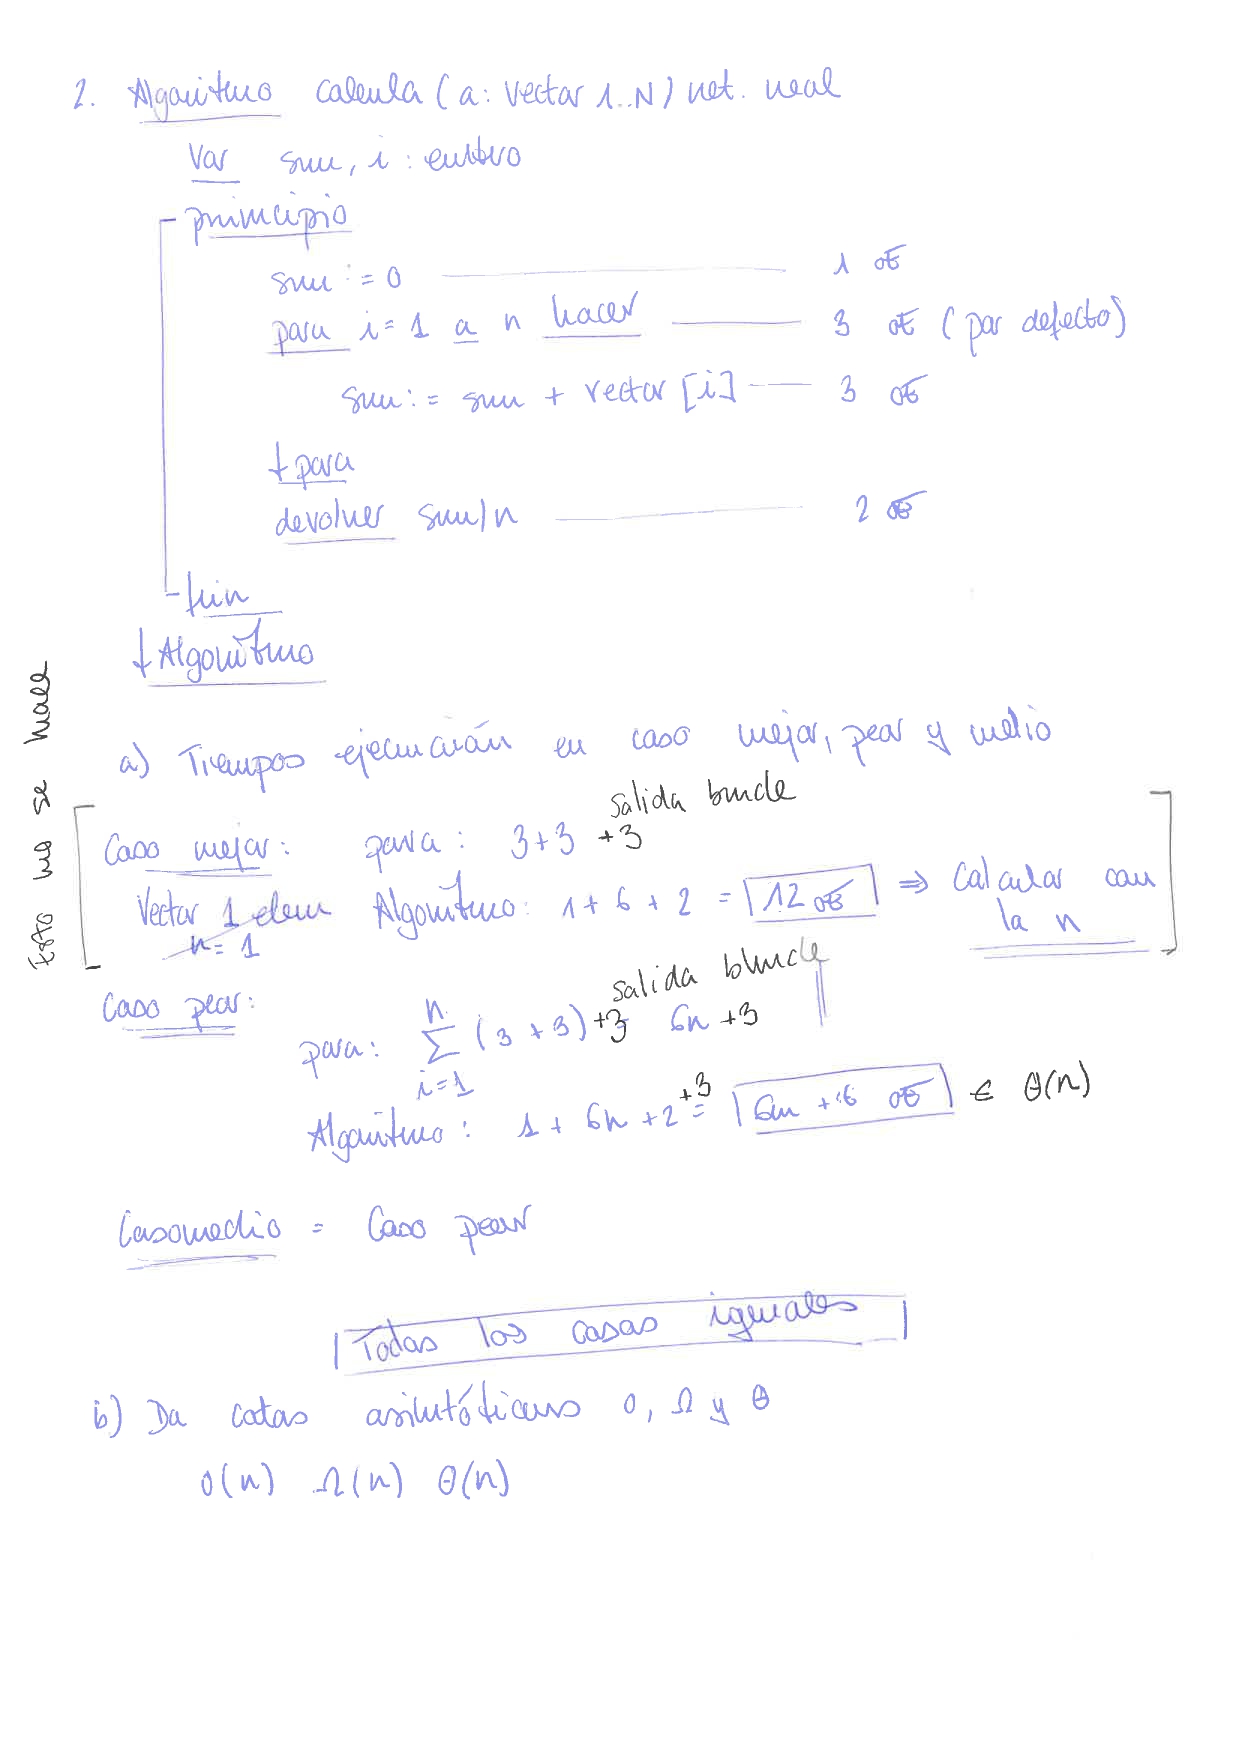 2. Algoritmo calcula (a: vector 1..N) ret. real
Var sum, i : entero
principio
sum := 0 1 OE
para i=1 a n hacer 3 OE (por defecto)
sum := sum + vector [i] 3 OE
fpara
devolver sum/n 2 OE
fin
fAlgoritmo
Esto no se hace
a) Tiempos ejecución en caso mejor, peor y medio
salida bucle
Caso mejor: para: 3+3 +3
Vector 1 elem Algoritmo: 1+6+2 = 12 OE ⇒ Calcular con
n=1 la n
salida blucle
Caso peor:
para: n ∑ i=1 (3+3) +3 6n +3
Algoritmo: 1 + 6n + 2 +3 = 6n + 6 OE ∈ Θ(n)
Caso medio = Caso peor
Todos los casos iguales
b) Da cotas asintóticas O, Ω y Θ
O(n) Ω(n) Θ(n)